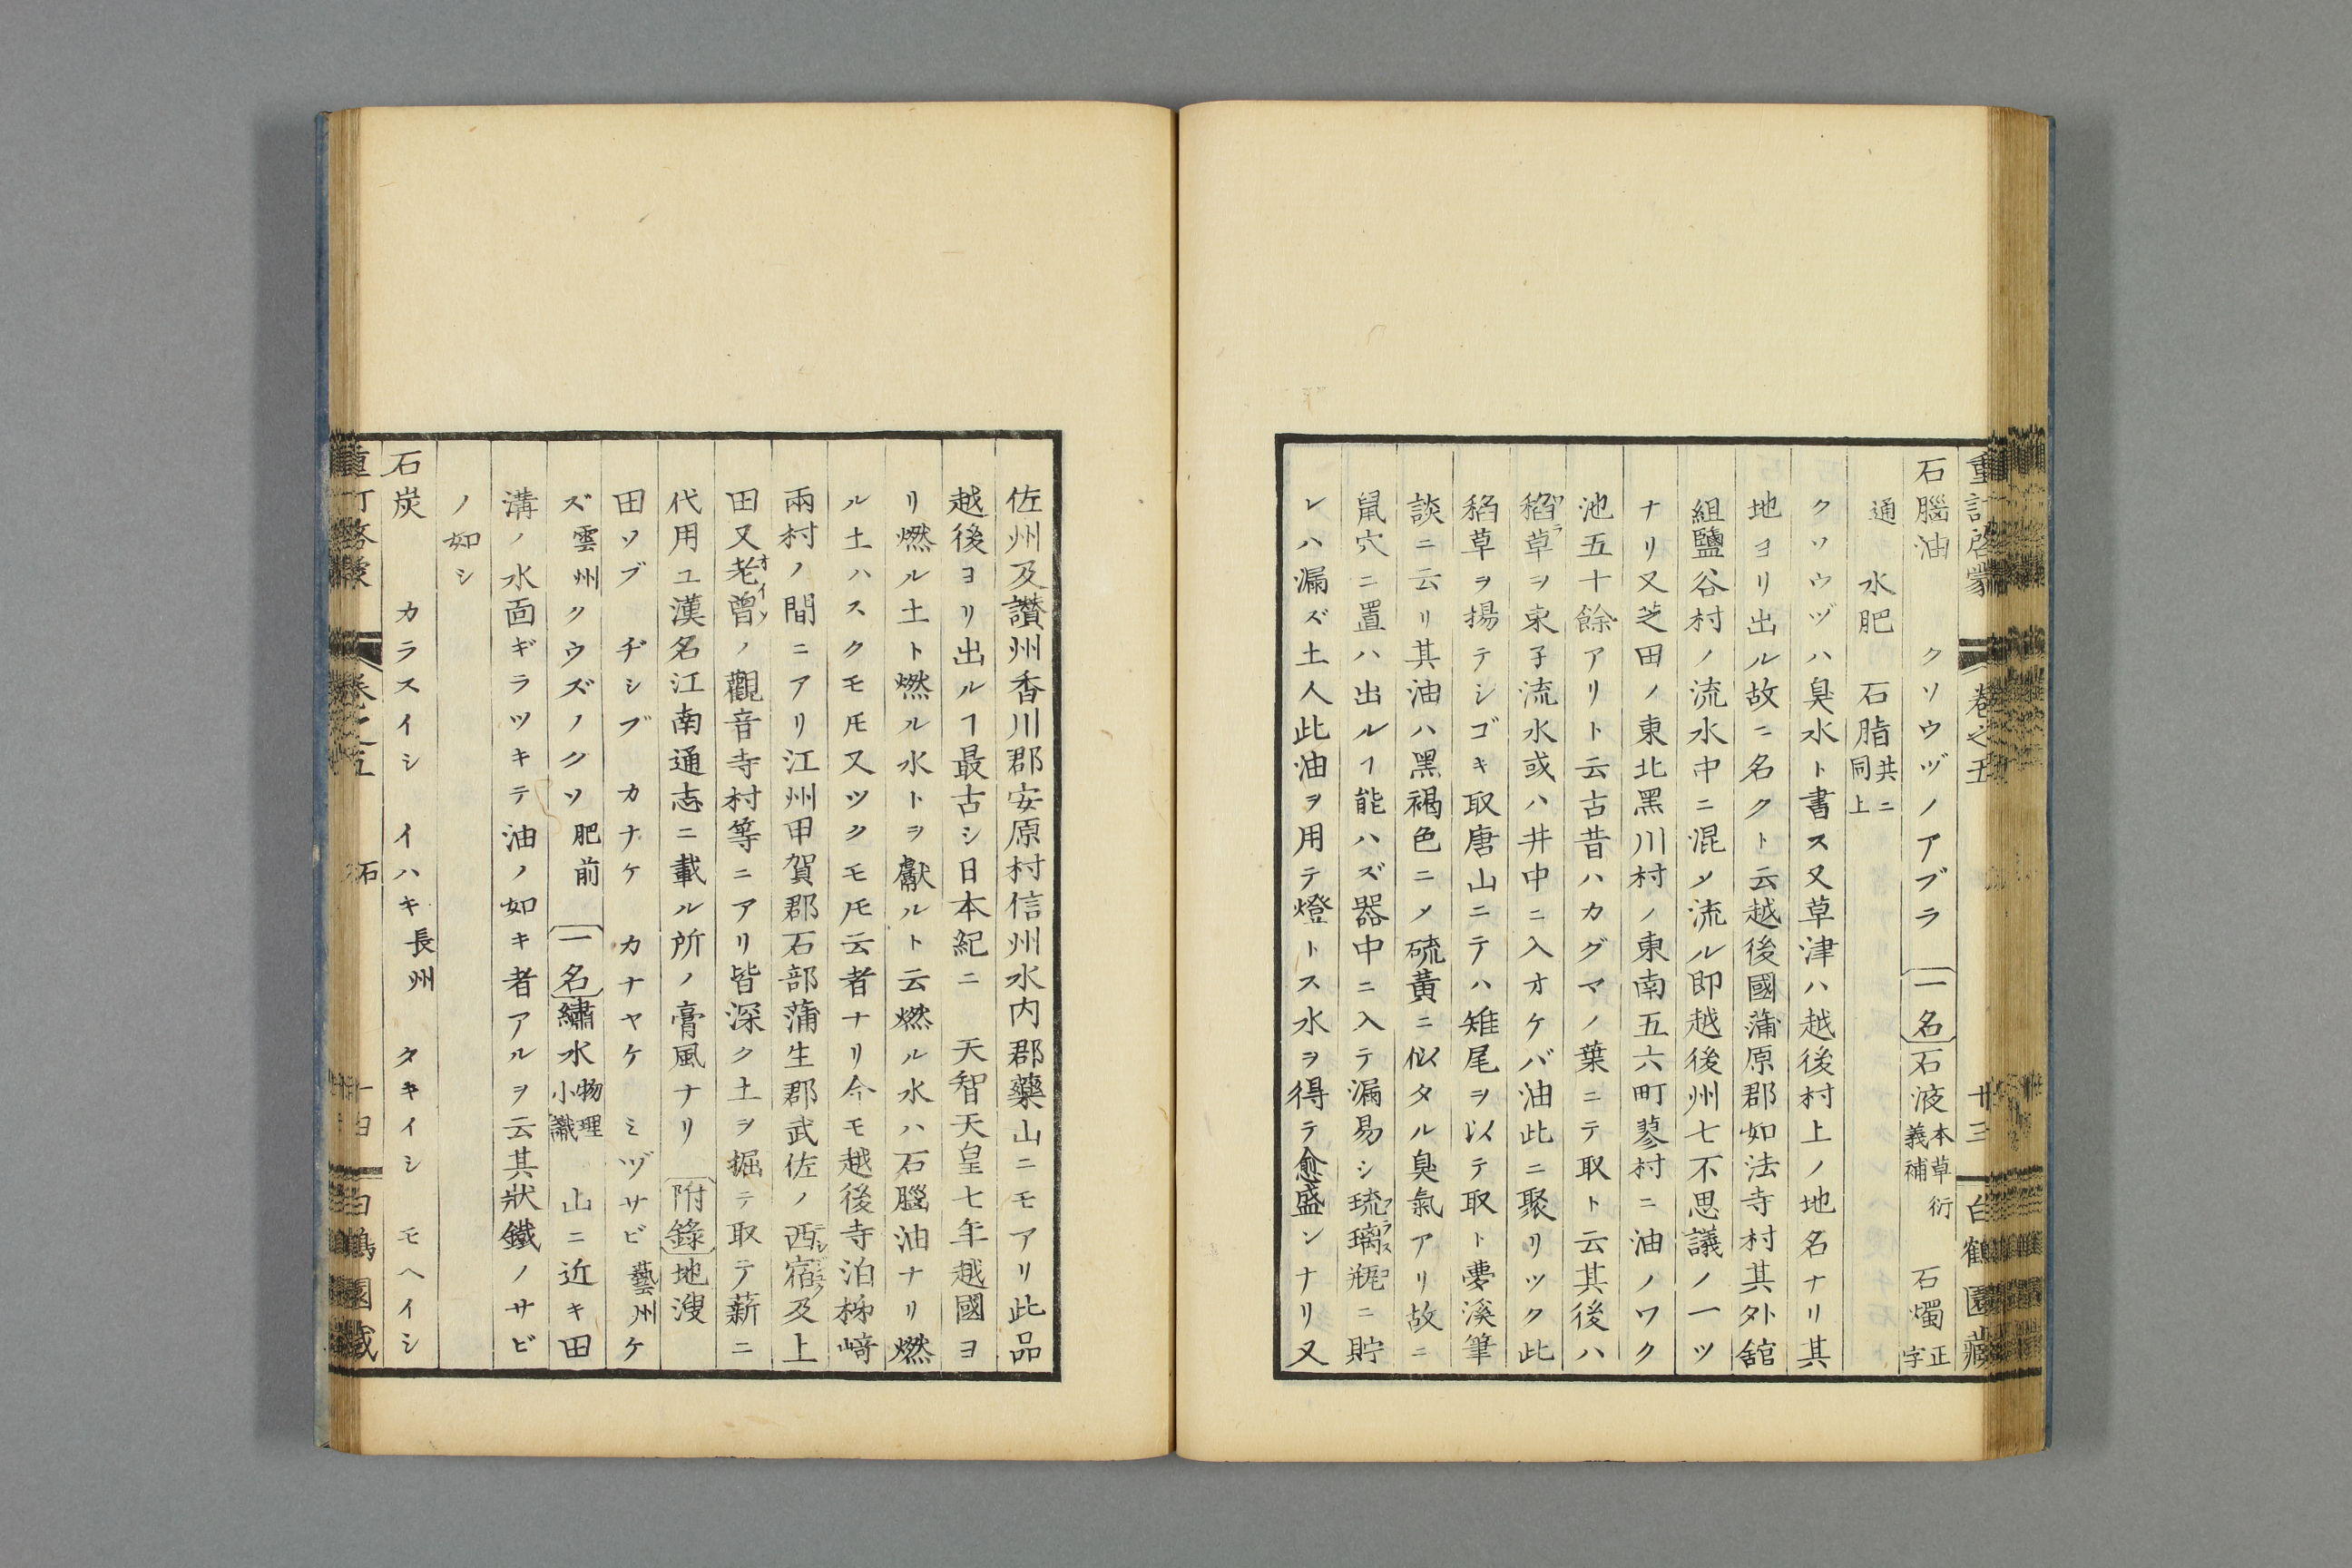 重訂啓蒙 巻之五 廿三 白鶴園藏
石腦油 クソウヅノアブラ 一名 石液 本草衍義補 石燭 正字
通 水肥 石脂 共ニ同上
クソウヅハ臭水ト書ス又草津ハ越後村上ノ地名ナリ其
地ヨリ出ル故ニ名クト云越後國蒲原郡如法寺村其外舘
組鹽谷村ノ流水中ニ混メ流ル即越後州七不思議ノ一ツ
ナリ又芝田ノ東北黑川村ノ東南五六町蓼村ニ油ノワク
池五十餘アリト云古昔ハカグマノ葉ニテ取ト云其後ハ
稻草ヲ束子流水或ハ井中ニ入オケバ油此ニ聚リツク此
稻草ヲ揚テシゴキ取唐山ニテハ雉尾ヲ以テ取ト夢溪筆
談ニ云リ其油ハ黑褐色ニメ硫黃ニ似タル臭氣アリ故ニ
鼠穴ニ置ハ出ルヿ能ハズ器中ニ入テ漏易シ琉璃瓶ニ貯
レハ漏ズ土人此油ヲ用テ燈トス水ヲ得テ愈盛ンナリ又
佐州及讃州香川郡安原村信州水内郡藥山ニモアリ此品
越後ヨリ出ルヿ最古シ日本紀ニ 天智天皇七年越國ヨ
リ燃ル土ト燃ル水トヲ獻ルト云燃ル水ハ石腦油ナリ燃
ル土ハスクモ𪜈又ツクモ𪜈云者ナリ今モ越後寺泊柹﨑
兩村ノ間ニアリ江州甲賀郡石部蒲生郡武佐ノ西宿及上
田又老曾ノ觀音寺村等ニアリ皆深ク土ヲ掘テ取テ薪ニ
代用ユ漢名江南通志ニ載ル所ノ膏風ナリ 附錄 地溲
田ソブ ヂシブ カナケ カナヤケ ミヅサビ 藝州 ケ
ズ 雲州 クウズノクソ 肥前 一名 繡水 物理小識 山ニ近キ田
溝ノ水面ギラツキテ油ノ如キ者アルヲ云其狀鐵ノサビ
ノ如シ
石炭 カラスイシ イハキ 長州 タキイシ モヘイシ
重訂啓蒙 巻之五 石 白鶴園藏